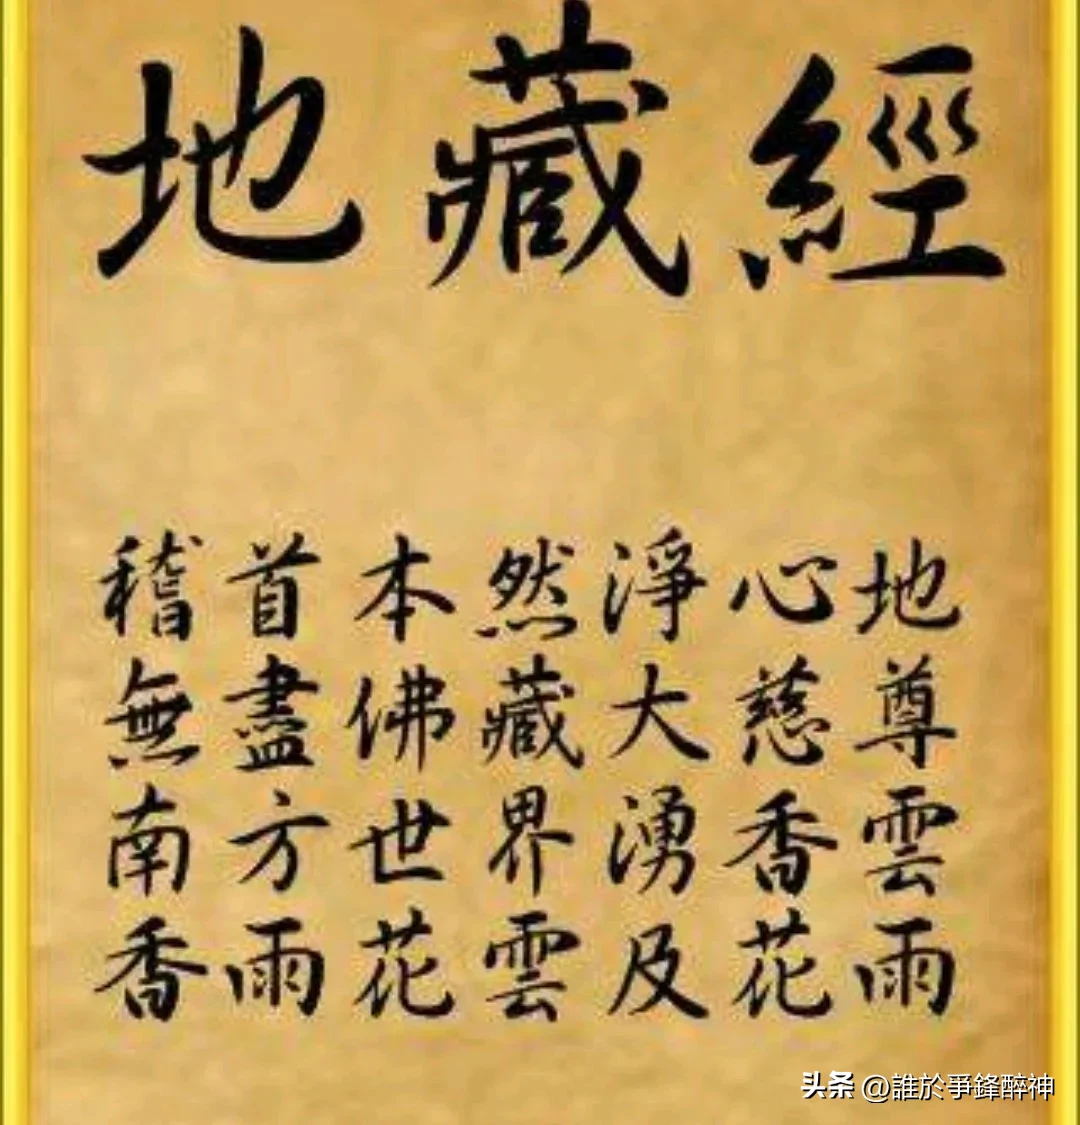 地藏經
稽首本然淨心地
無盡佛藏大慈尊
南方世界湧香雲
香雨花雲及花雨
头条 @誰於爭鋒醉神